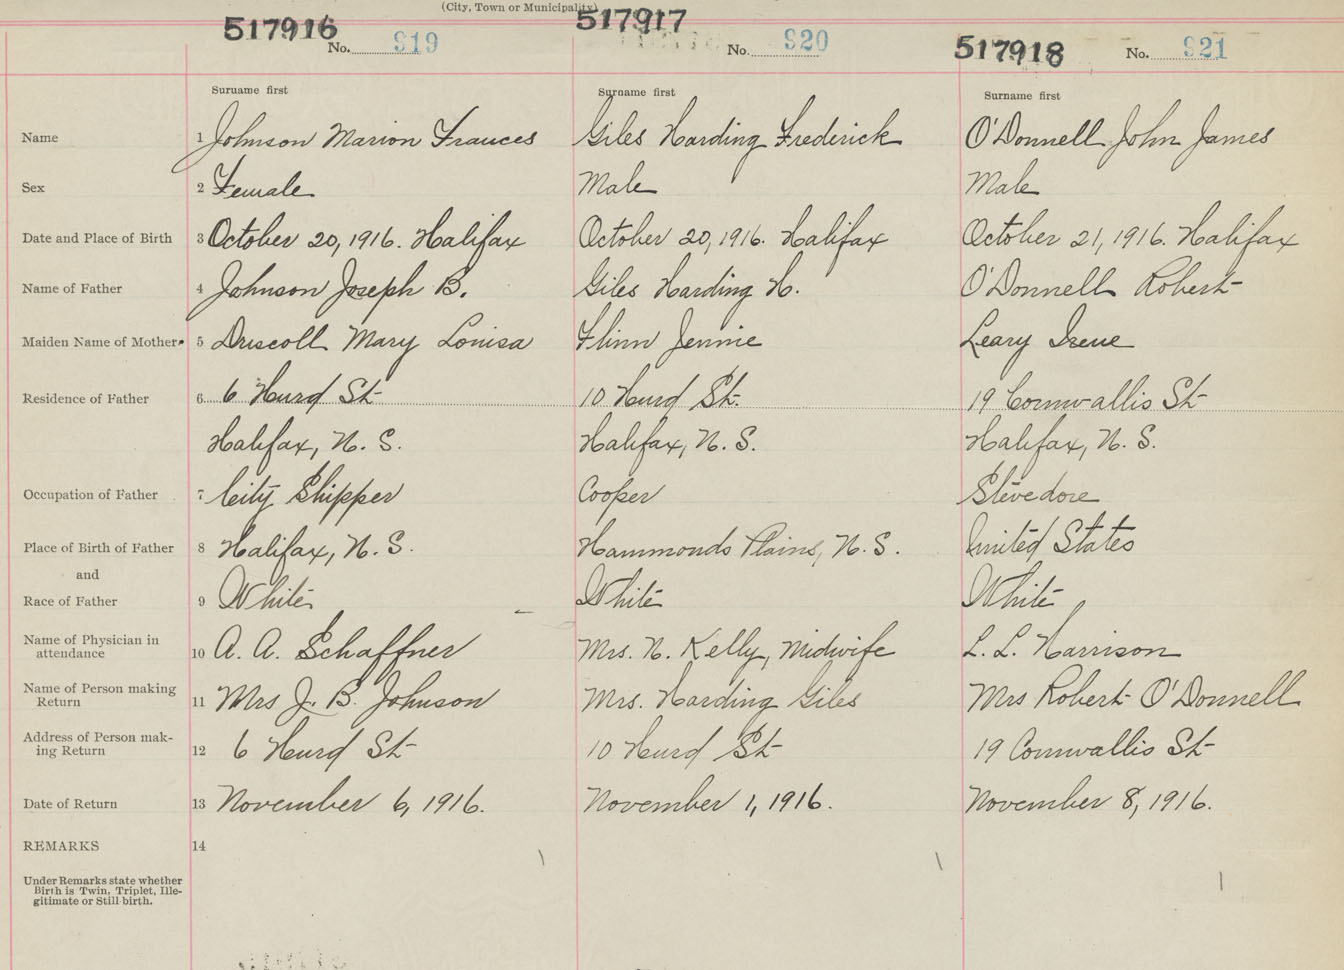 (City, Town or Municipality)
517916 No. 919
517917 No. 920
517918 No. 921
Surname first Surname first Surname first
Name 1 Johnson Marion Frances Giles Harding Frederick O'Donnell John James
Sex 2 Female Male Male
Date and Place of Birth 3 October 20, 1916. Halifax October 20, 1916. Halifax October 21, 1916. Halifax
Name of Father 4 Johnson Joseph B. Giles Harding H. O'Donnell Robert
Maiden Name of Mother 5 Driscoll Mary Louisa Flinn Jennie Leary Irene
Residence of Father 6 6 Hurd St 10 Hurd St. 19 Cornwallis St
Halifax, N. S. Halifax, N. S. Halifax, N. S.
Occupation of Father 7 City Shipper Cooper Stevedore
Place of Birth of Father 8 Halifax, N. S. Hammonds Plains, N. S. United States
and
Race of Father 9 White White White
Name of Physician in
attendance 10 A. A. Schaffner Mrs. N. Kelly, Midwife L. L. Harrison
Name of Person making
Return 11 Mrs J. B. Johnson Mrs. Harding Giles Mrs Robert O'Donnell
Address of Person mak-
ing Return 12 6 Hurd St 10 Hurd St 19 Cornwallis St
Date of Return 13 November 6, 1916. November 1, 1916. November 8, 1916.
REMARKS 14
Under Remarks state whether
Birth is Twin, Triplet, Ille-
gitimate or Still birth.